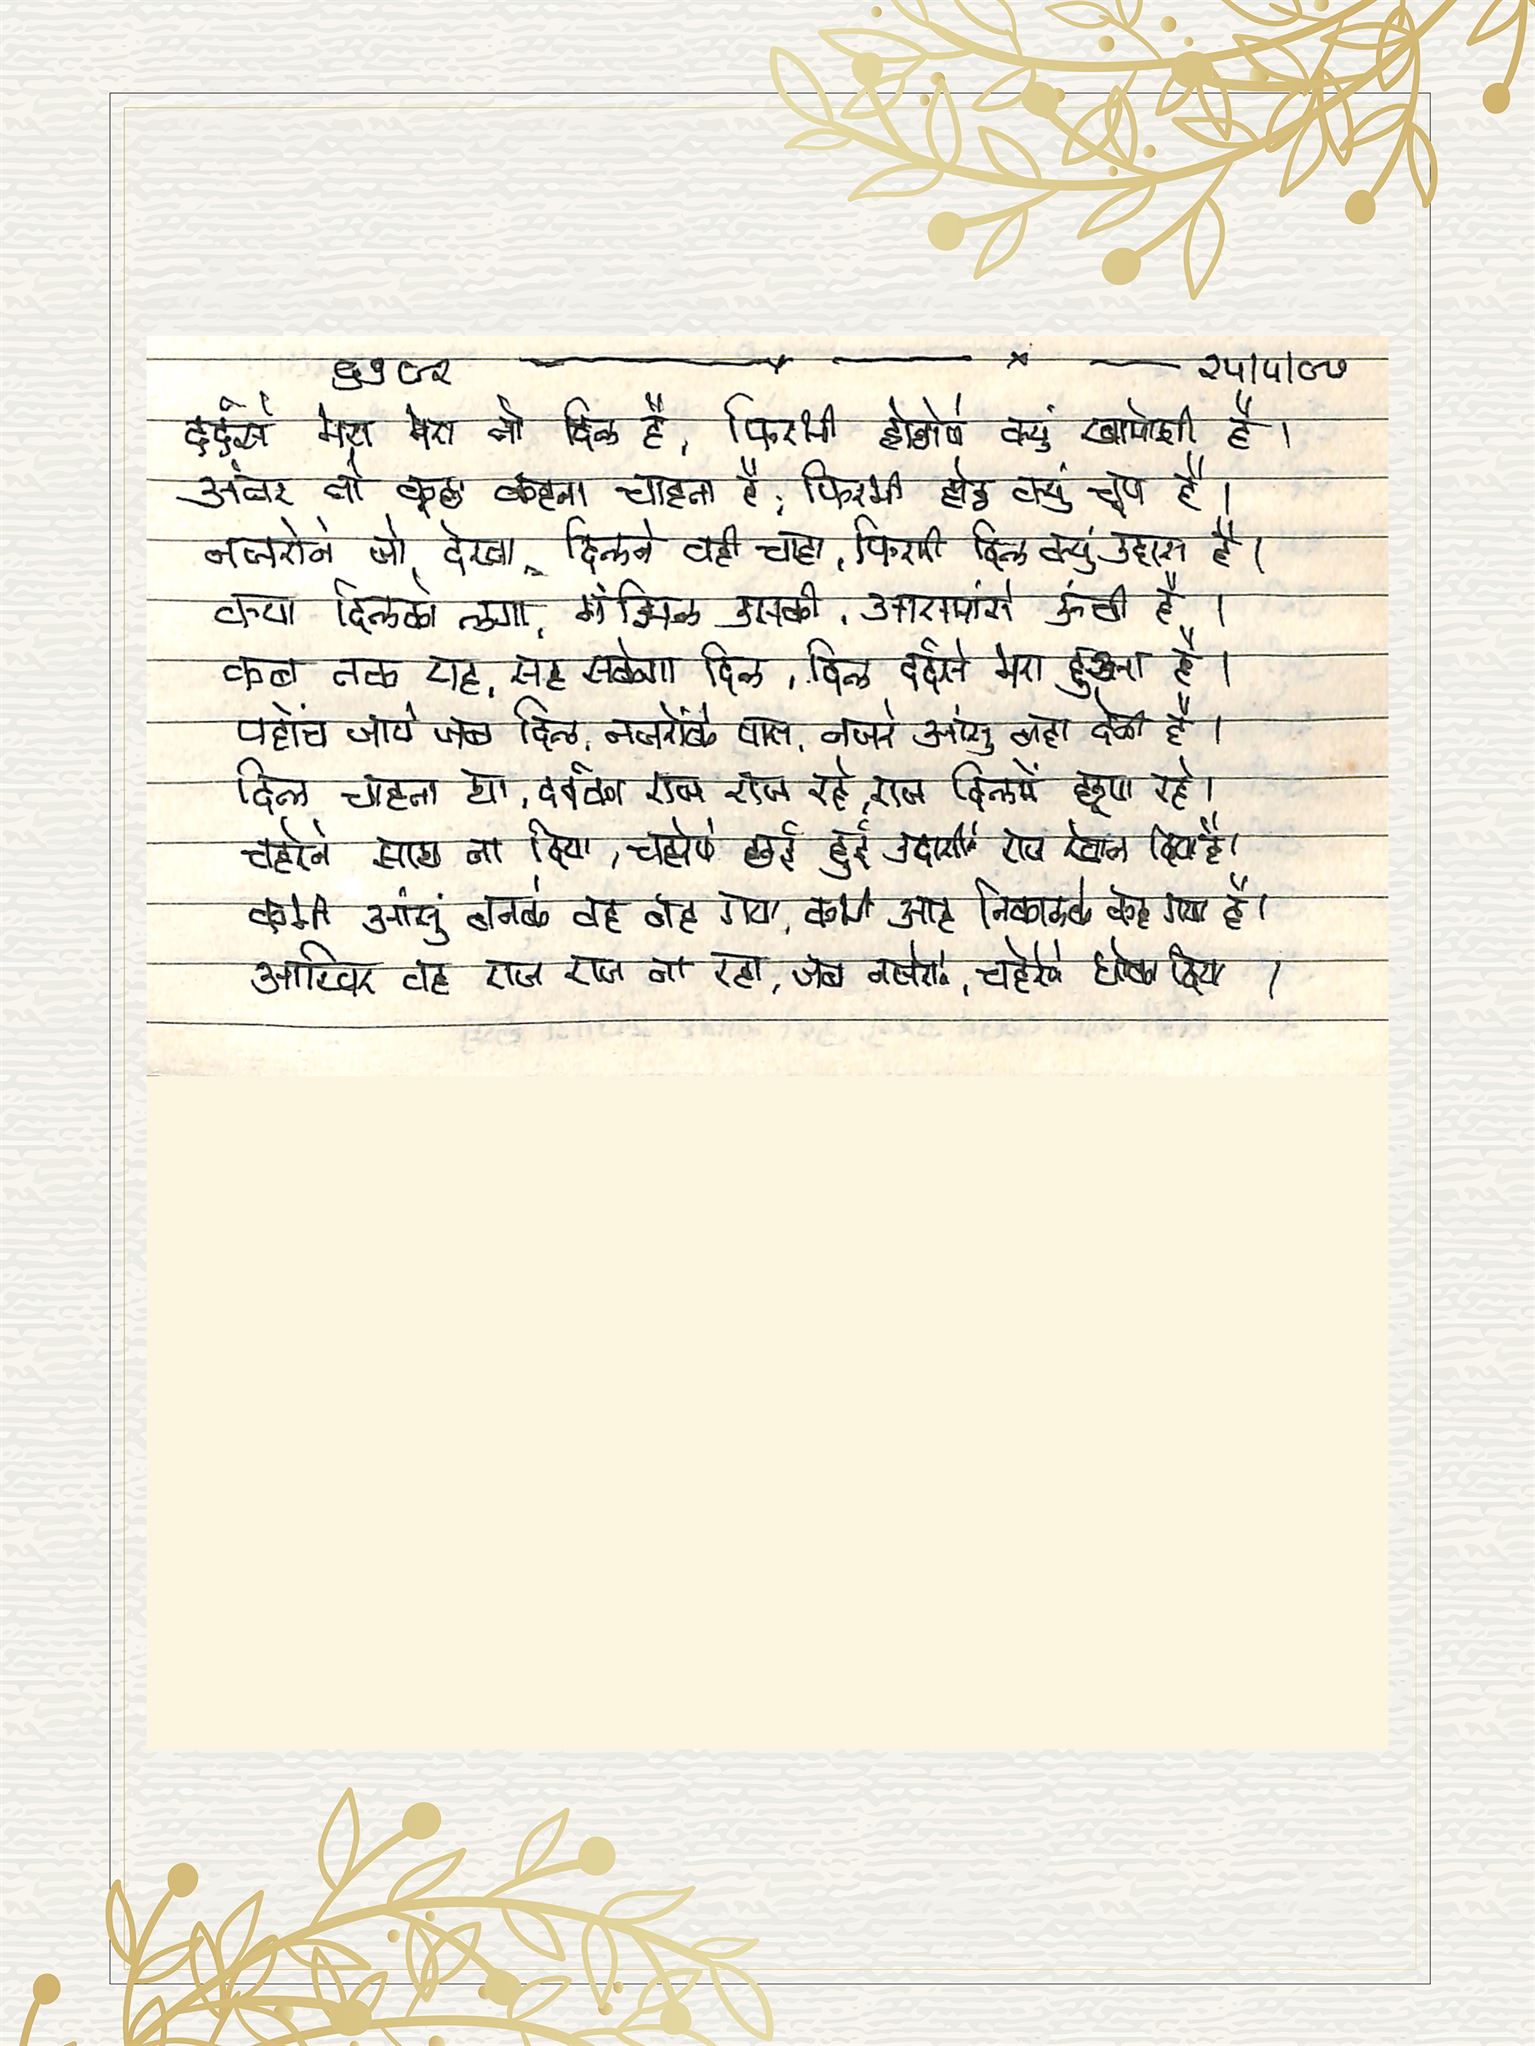 दर्दसे मेरा मेरा तो दिल है, फिरभी होठोपे क्युं खामोशी है ।
अंदर तो कुछ कहना चाहता है, फिरभी होठ क्युं चूप है ।
नजरोने जो देखा, दिलने वही चाहा, फिरभी दिल क्युं उदास है ।
क्या दिलको लगा, मंझिल उसकी, आसमांसे ऊंची है ।
कब तक यह, सह सकेगा दिल, दिल दर्दसे भरा हुआ है ।
पहोंच जाये जब दिल, नजरोंके पास, नजरे आंसु बहा देती है ।
दिल चाहता था, दर्दका राज राज रहे, राज दिलमें छूपा रहे ।
चहेरेने साथ ना दिया, चहेरेपे छाई हुई उदासीने राज खोल दिया है ।
कभी आंसुं बनके वह बह गया, कभी आह निकालके कह गया है ।
आखिर वह राज राज ना रहा, जब नजरोने, चहेरेने धोका दिया ।